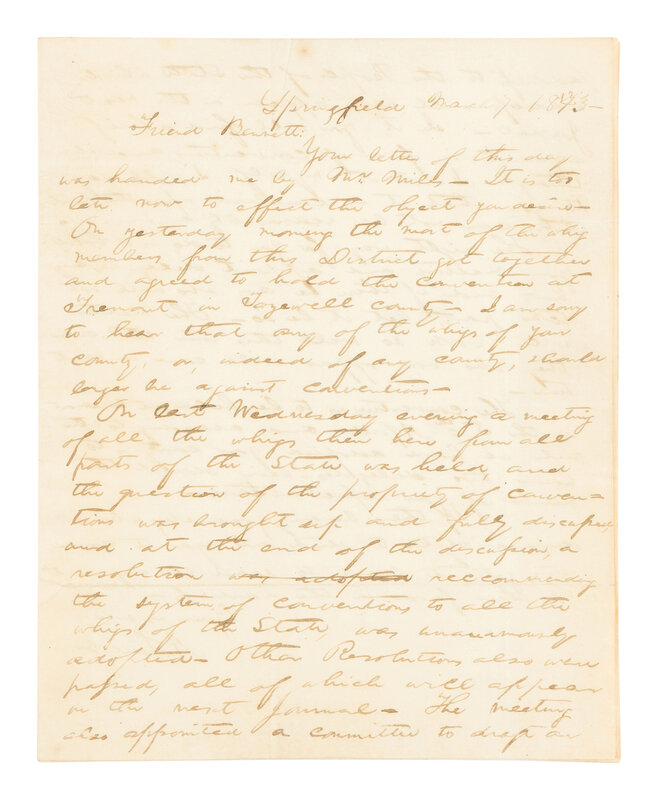 Springfield March 7. 1843-
Friend Bennett:
Your letter of this day
was handed me by Mr. Miles- It is too
late now to effect the object you desire-
On yesterday morning the most of the whig
members from this District got together
and agreed to hold the convention at
Tremont in Tazewell county- I am sorry
to hear that any of the whigs of your
county, or, indeed of any county, should
longer be against conventions-
On last Wednesday evening a meeting
of all the whigs then here from all
parts of the State was held, and
the question of the propriety of conven=
tions was brought up and fully discussed
and at the end of the discussion, a
resolution was adopted reccommending
the system of conventions to all the
whigs of the State, was unanimously
adopted- Other Resolutions also were
passed, all of which will appear
in the next Journal- The meeting
also appointed a committee to draft an